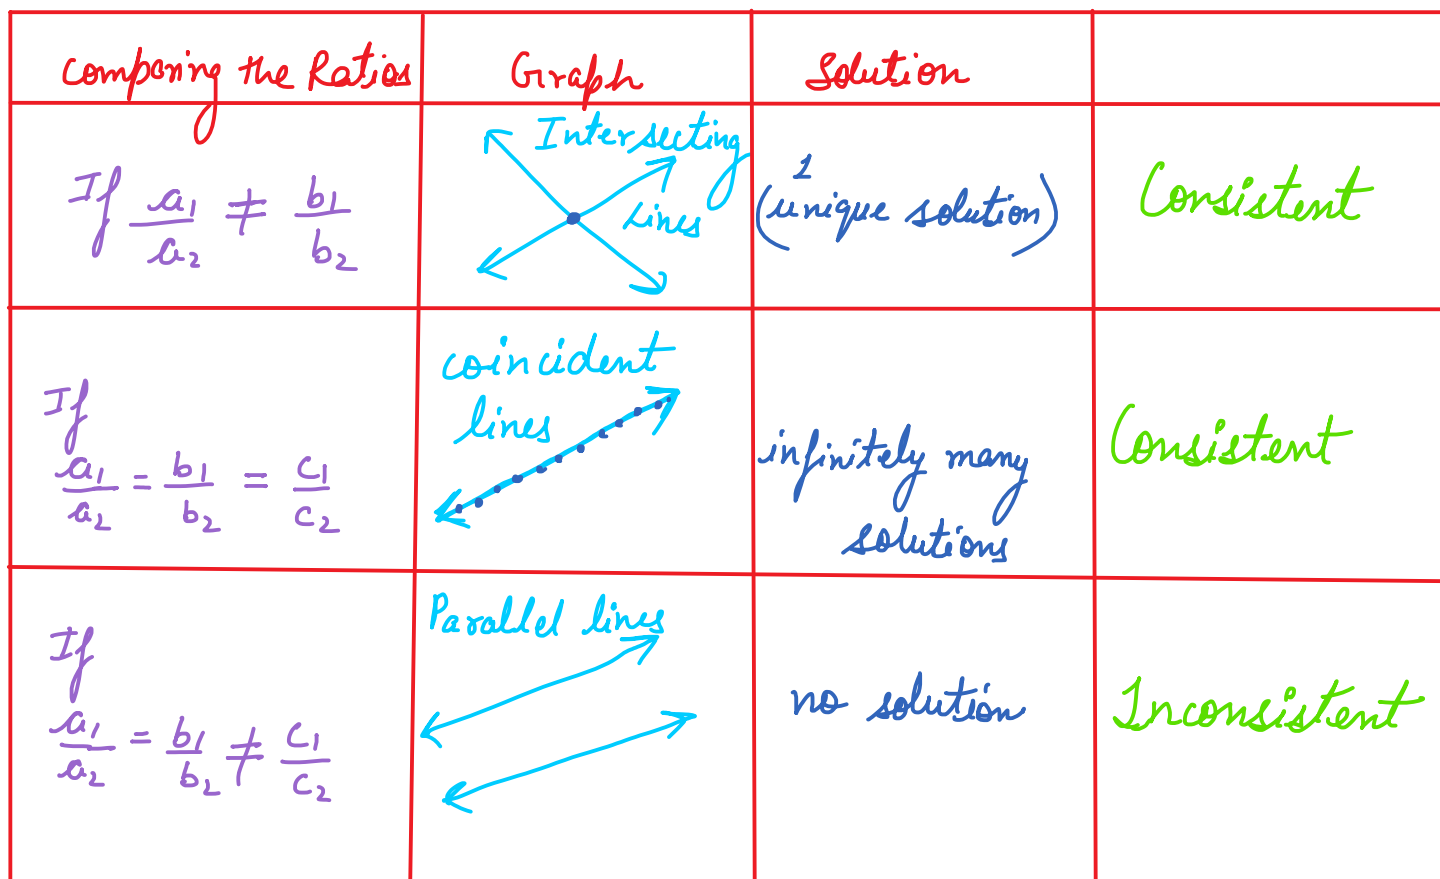 Comparing the Ratios Graph Solution
If a1/a2 ≠ b1/b2
Intersecting
Lines
1
(unique solution)
Consistent
If
a1/a2 = b1/b2 = c1/c2
coincident
lines
infinitely many
solutions
Consistent
If
a1/a2 = b1/b2 ≠ c1/c2
Parallel lines
no solution
Inconsistent